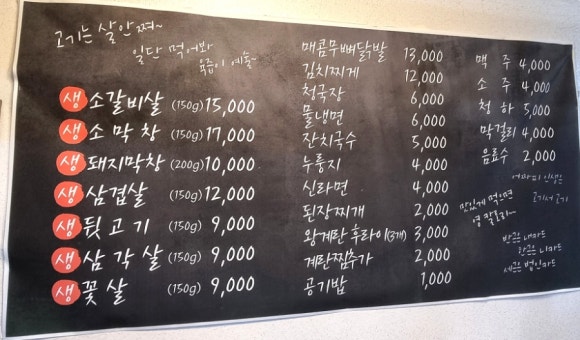 고기는 살 안 쪄~
일단 먹어봐
육즙이 예술~
생 소갈비살 (150g) 15,000
생 소막창 (150g) 17,000
생 돼지막창 (200g) 10,000
생 삼겹살 (150g) 12,000
생 뒷고기 (150g) 9,000
생 삼각살 (150g) 9,000
생 꽃살 (150g) 9,000
매콤무뼈닭발 13,000
김치찌개 12,000
청국장 6,000
물냉면 6,000
잔치국수 5,000
누룽지 4,000
신라면 4,000
된장찌개 2,000
왕계란 후라이(3개) 3,000
계란찜추가 2,000
공기밥 1,000
맥주 4,000
소주 4,000
청하 5,000
막걸리 4,000
음료수 2,000
어차피 인생은
고기서 고기
맛있게 먹으면
영 칼로리~
방긋은 내카드
한긋은 니카드
세긋은 법인카드